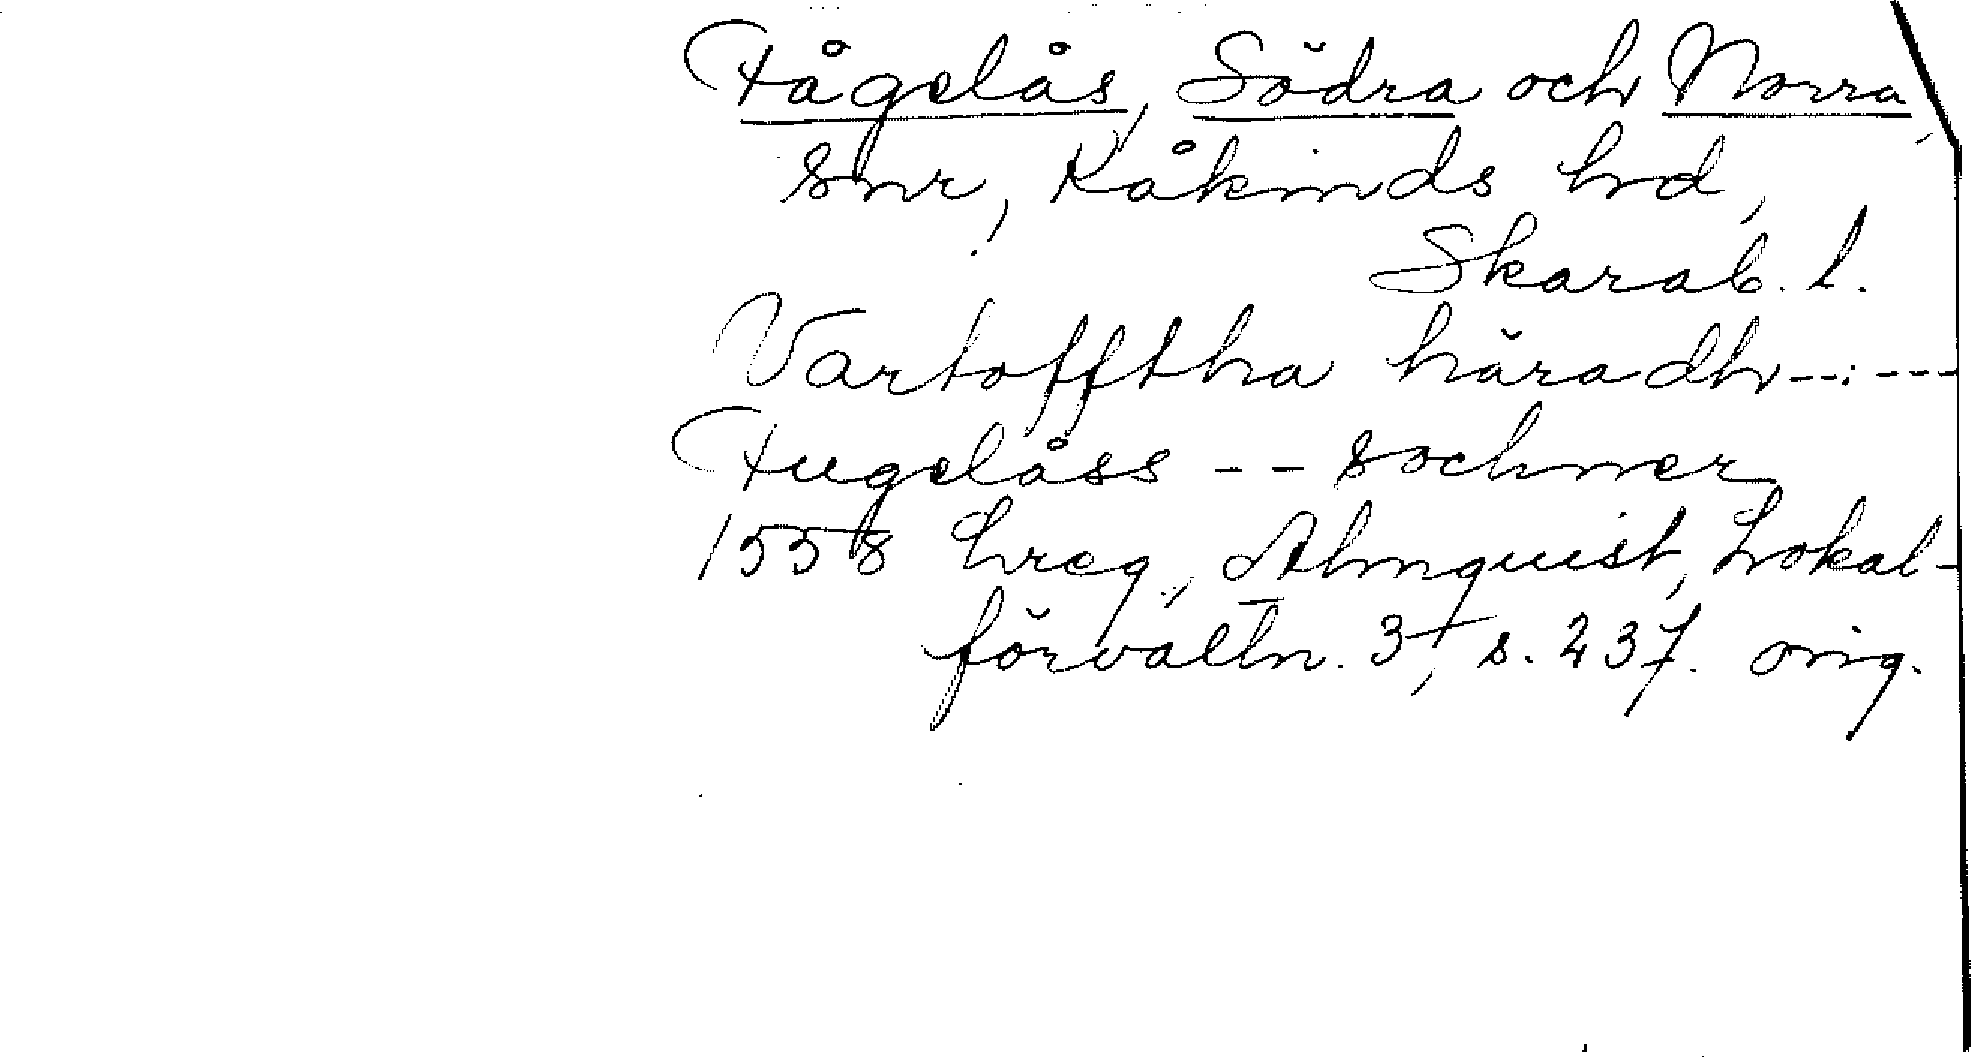 Fågelås, Södra och Norra,
snr, Kåkinds hd,
Skarab. l.
Vartofftha häradh --:---
Fugelåss -- sochner
1558 hreg., Almquist, Lokal-
förvaltn. 3, s. 237. orig.